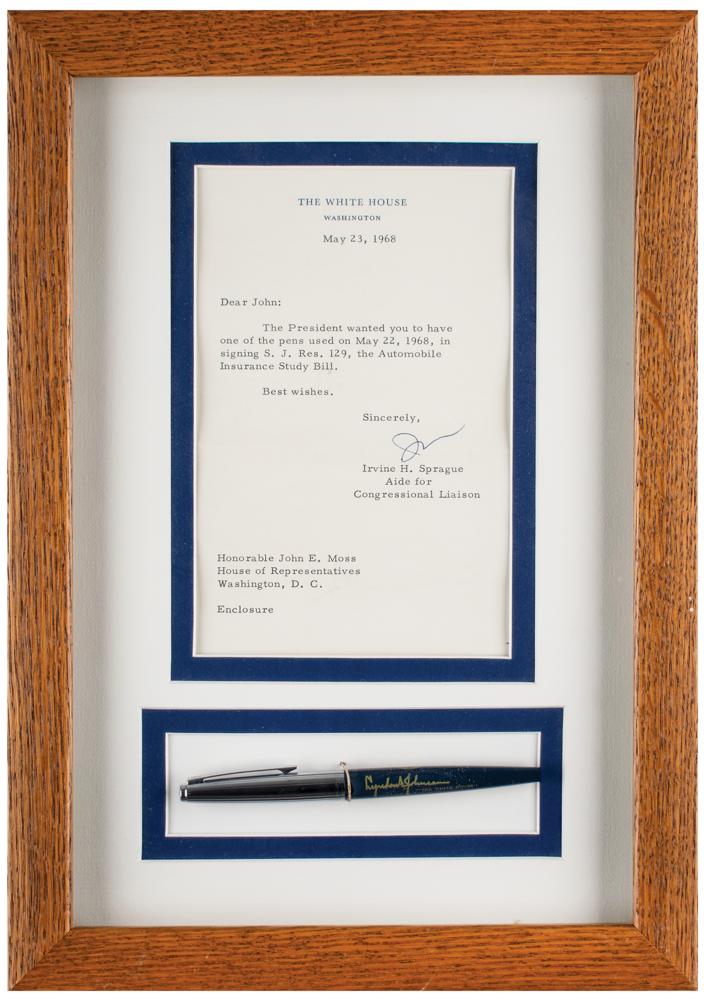 THE WHITE HOUSE
WASHINGTON
May 23, 1968
Dear John:
The President wanted you to have
one of the pens used on May 22, 1968, in
signing S. J. Res. 129, the Automobile
Insurance Study Bill.
Best wishes.
Sincerely,
Irvine H. Sprague
Aide for
Congressional Liaison
Honorable John E. Moss
House of Representatives
Washington, D. C.
Enclosure
Lyndon B Johnson